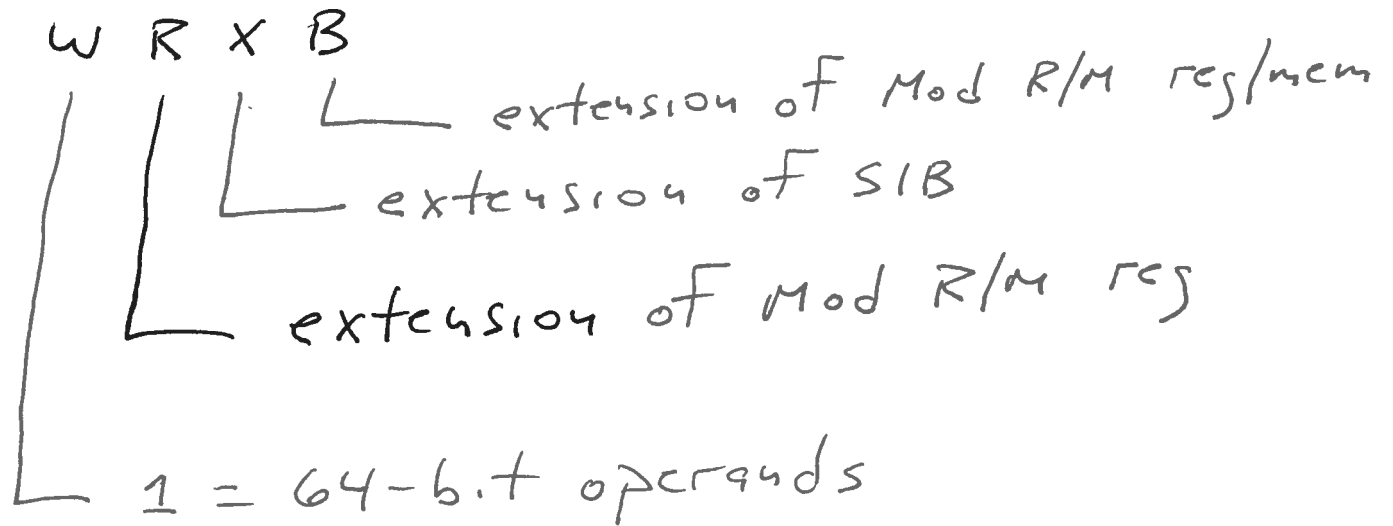 W R X B
extension of Mod R/M reg/mem
extension of SIB
extension of Mod R/M reg
1 = 64-bit operands